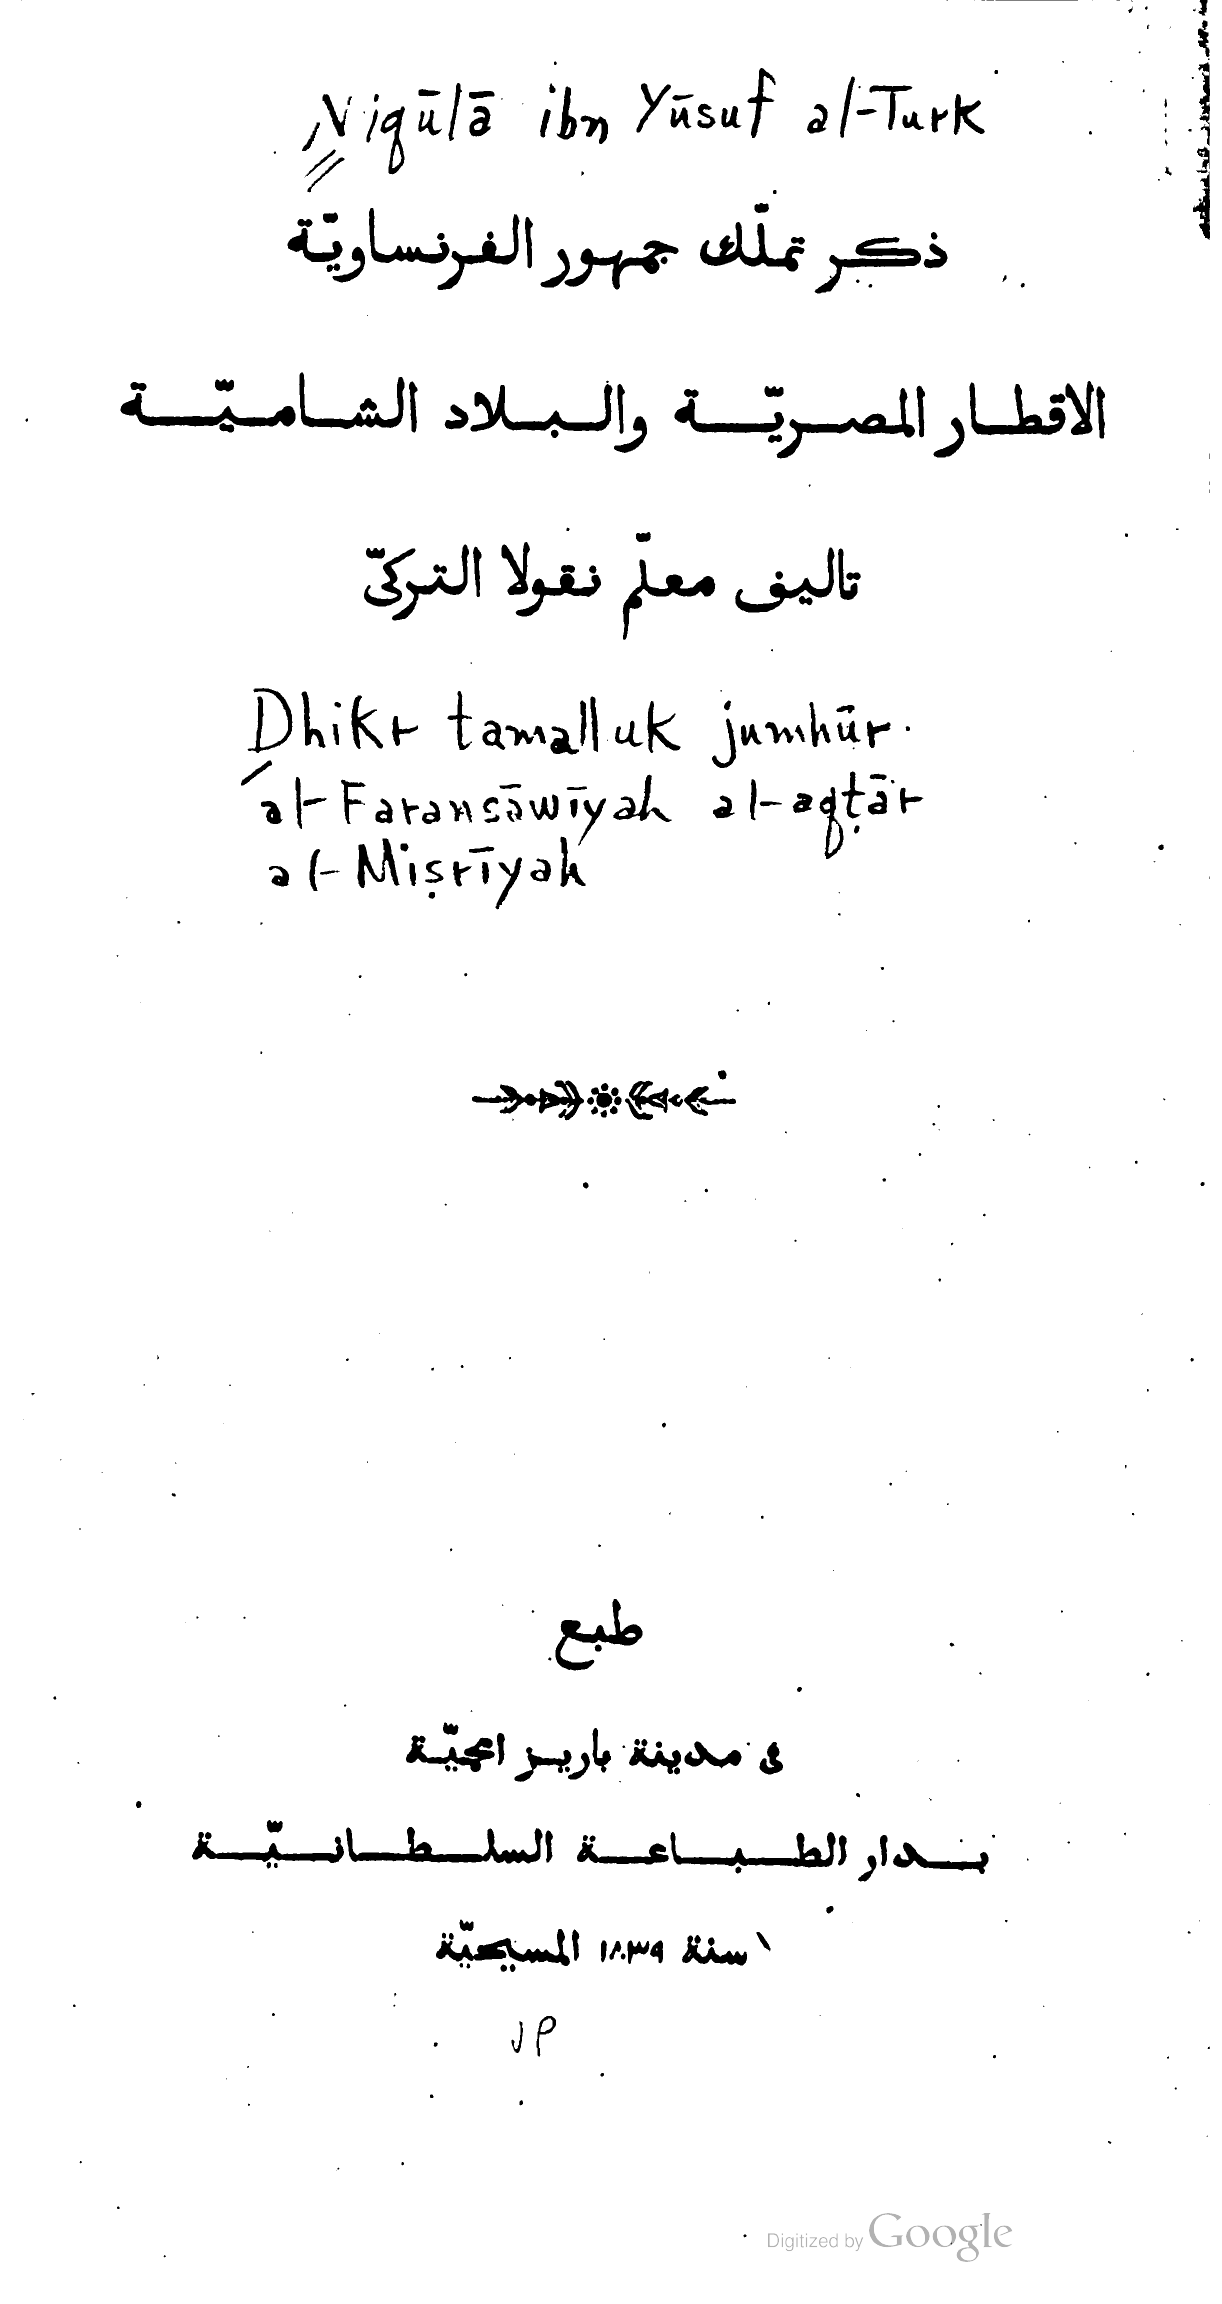 Niqūlā ibn Yūsuf al-Turk
ذكر تملّك جمهور الفرنساويّة
الاقطار المصريّة والبلاد الشاميّة
تاليف معلّم نقولا التركيّ
Dhikr tamalluk jumhūr
al-Faransāwīyah al-aqṭār
al-Miṣrīyah
طبع
فى مدينة باريز المحميّة
بدار الطباعة السلطانيّة
سنة ١٨٣٩ المسيحيّة
Digitized by Google